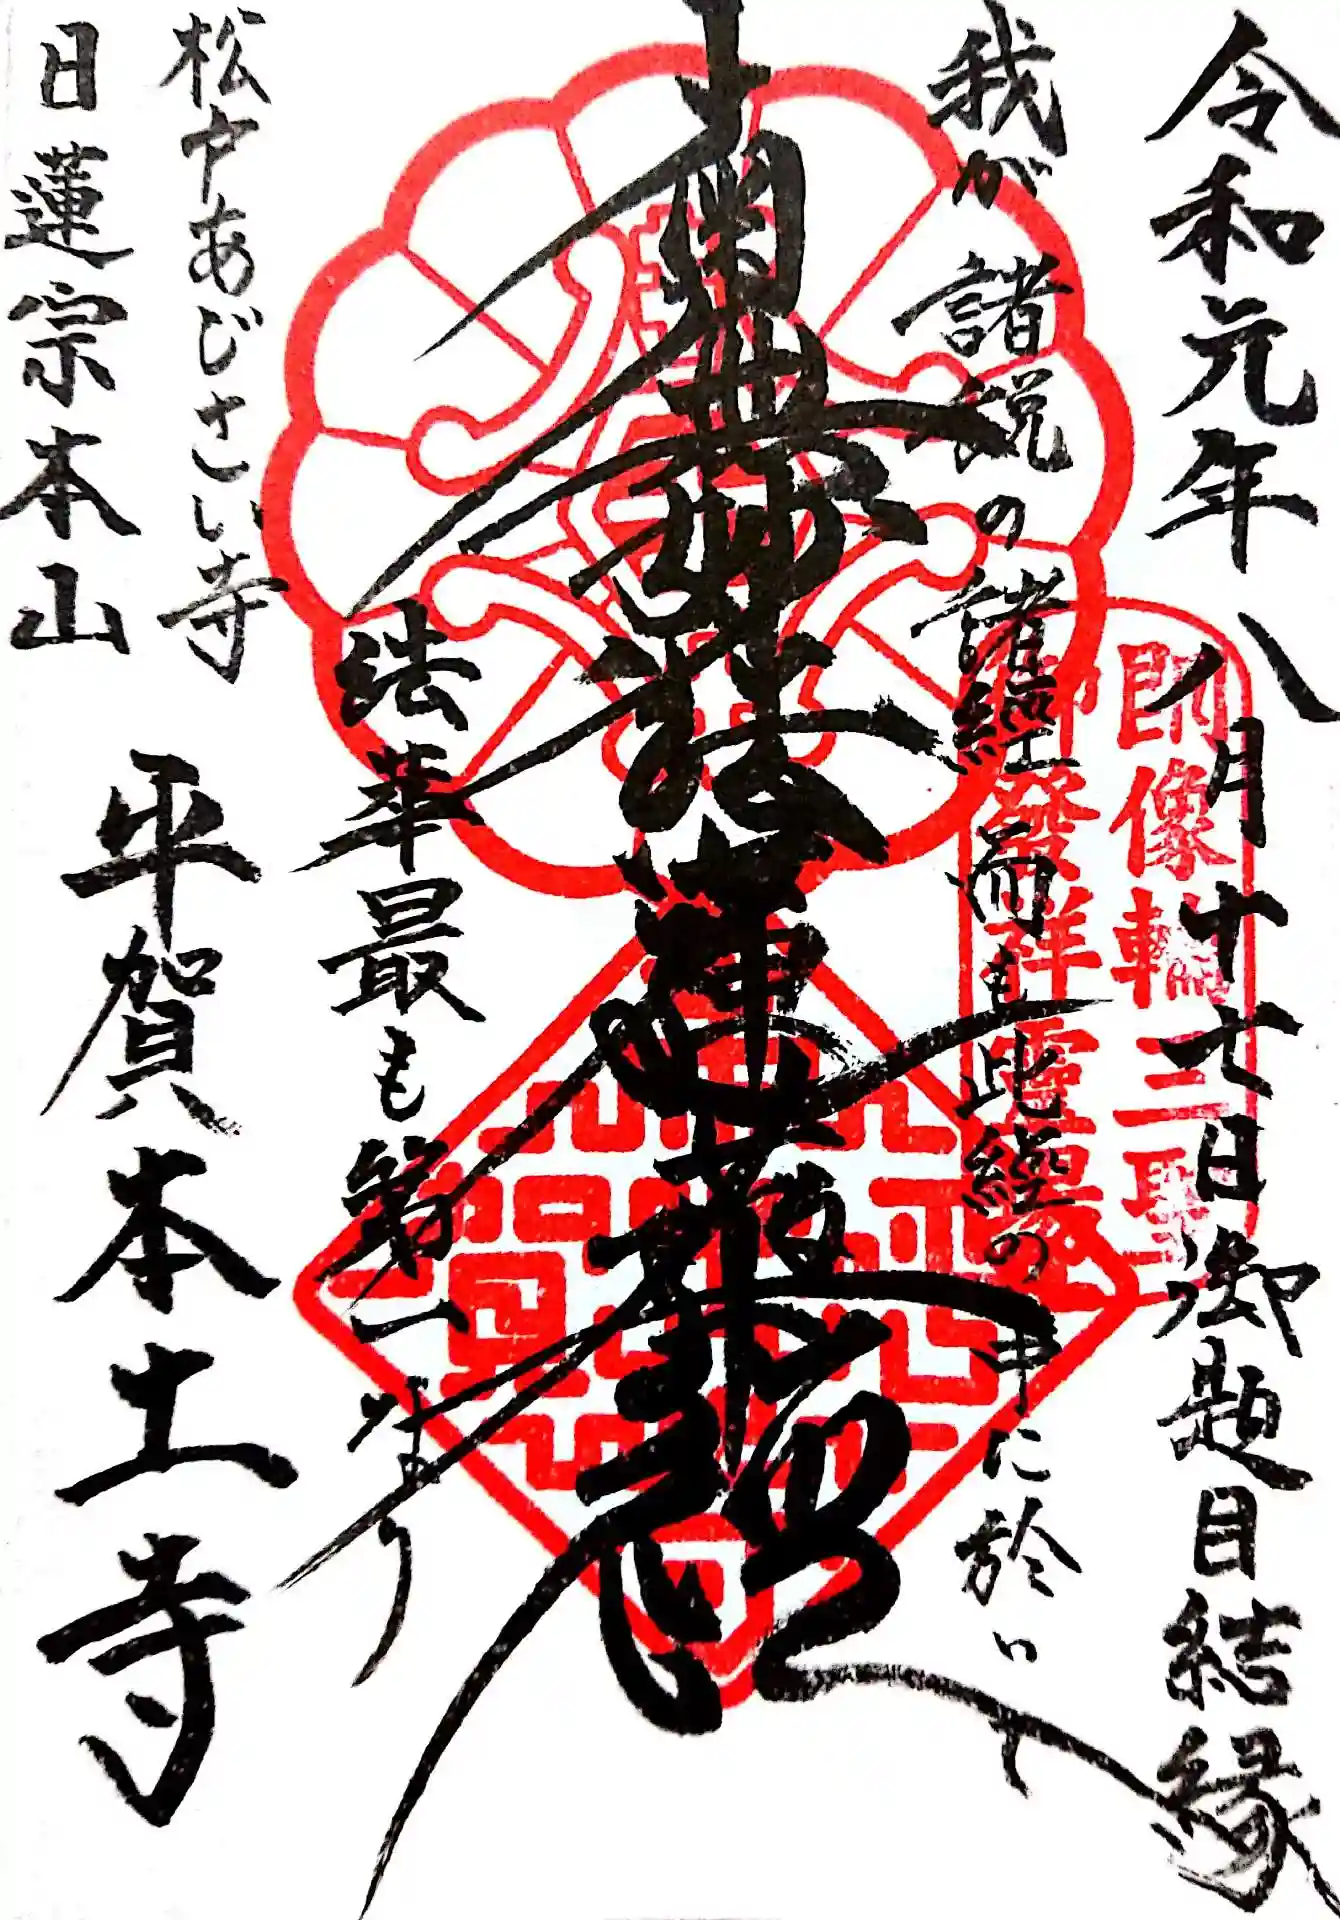 令和元年八月十七日御題目結縁
我が諸説の諸經而も此經の中に於いて
南無妙法蓮華經
法華最も第一なり
松戸あじさい寺
日蓮宗本山
平賀本土寺
師像輪三聖
御發祥靈場